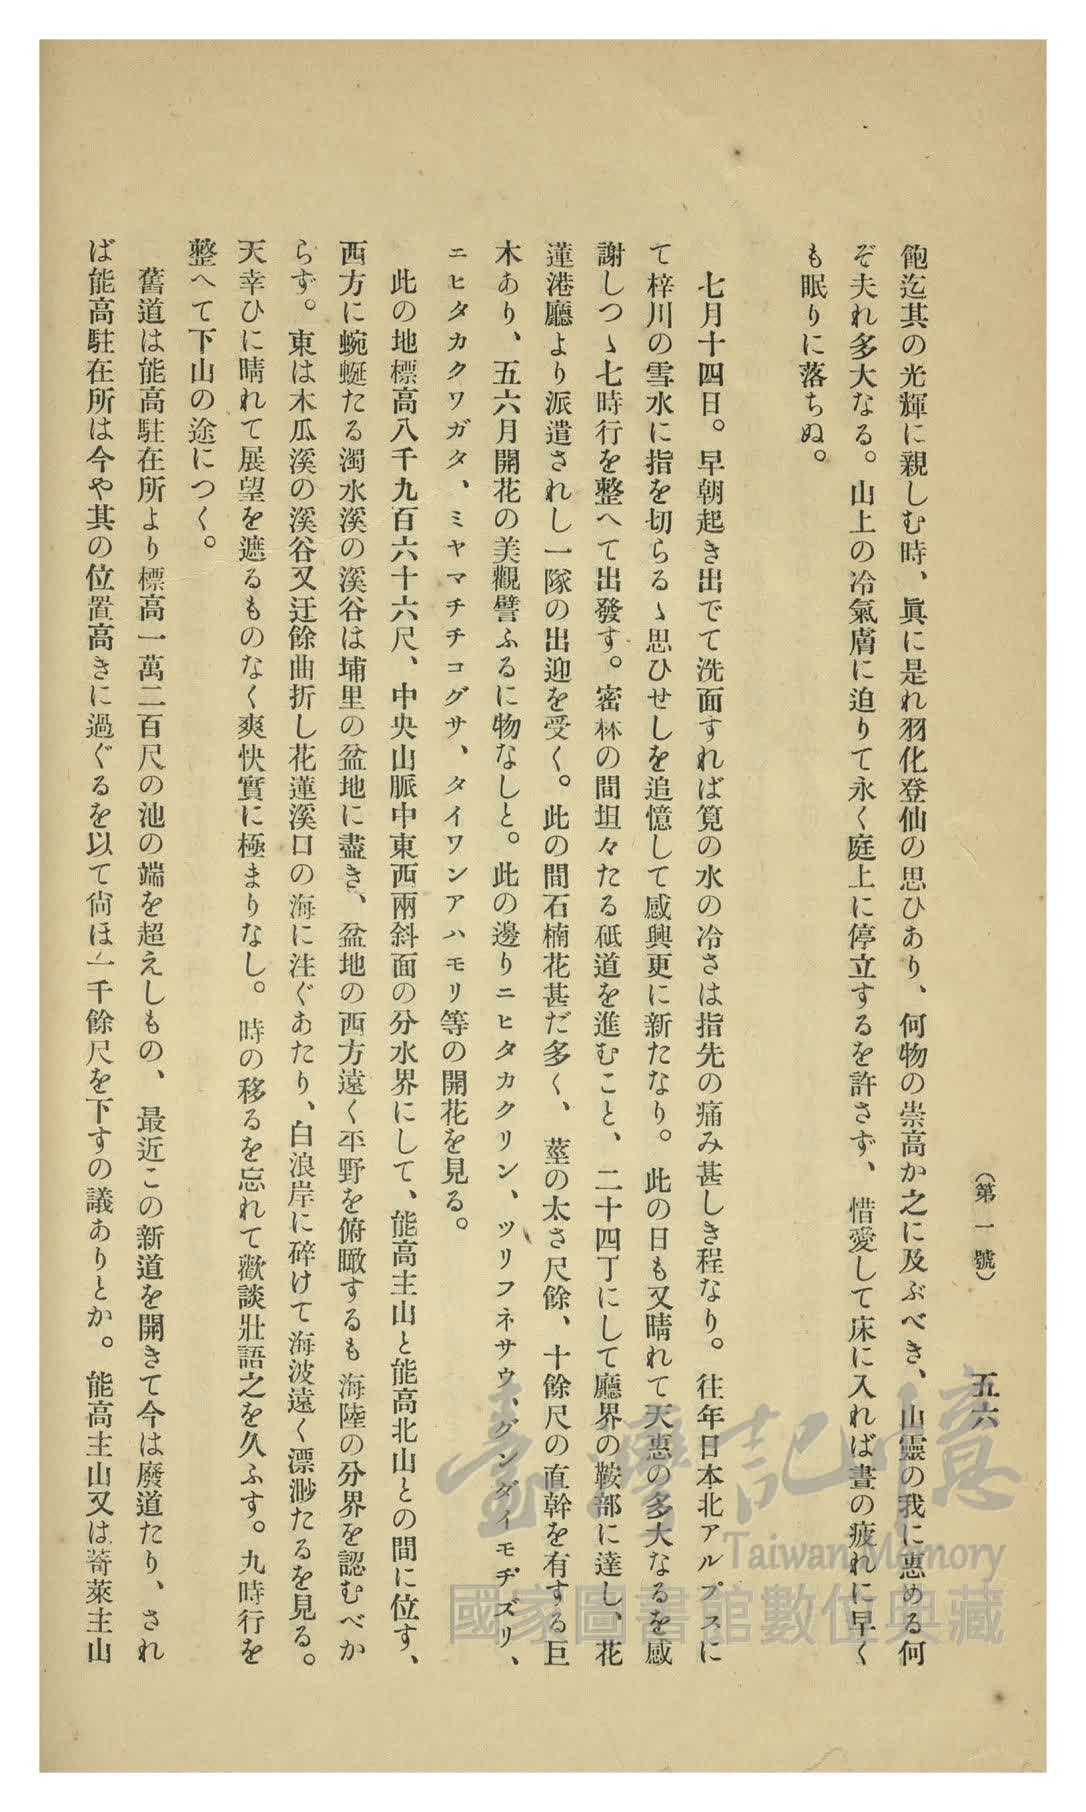 （第一號）
五六
飽迄其の光輝に親しむ時、眞に是れ羽化登仙の思ひあり、何物の崇高か之に及ぶべき、山靈の我に惠める何
ぞ夫れ多大なる。山上の冷氣膚に迫りて永く庭上に停立するを許さず、惜愛して床に入れば晝の疲れに早く
も眠りに落ちぬ。
七月十四日。早朝起き出でて洗面すれば筧の水の冷さは指先の痛み甚しき程なり。往年日本北アルプスに
て梓川の雪水に指を切らるゝ思ひせしを追憶して感興更に新たなり。此の日も又晴れて天惠の多大なるを感
謝しつゝ七時行を整へて出發す。密林の間坦々たる砥道を進むこと、二十四丁にして廳界の鞍部に達し、花
蓮港廳より派遣されし一隊の出迎を受く。此の間石楠花甚だ多く、莖の太さ尺餘、十餘尺の直幹を有する巨
木あり、五六月開花の美觀譬ふるに物なしと。此の邊りニヒタカクリン、ツリフネサウ、グンダイモヂズリ、
ニヒタカカクワガタ、ミヤマチチコグサ、タイワンアハモリ等の開花を見る。
此の地標高八千九百六十六尺、中央山脈中東西兩斜面の分水界にして、能高主山と能高北山との間に位す、
西方に蜿蜒たる濁水溪の溪谷は埔里の盆地に盡き、盆地の西方遠く平野を俯瞰するも海陸の分界を認むべか
らず。東は木瓜溪の溪谷又迂餘曲折し花蓮溪口の海に注ぐあたり、白浪岸に碎けて海波遠く漂渺たるを見る。
天幸ひに晴れて展望を遮るものなく爽快實に極まりなし。時の移るを忘れて歡談壯語之を久ふす。九時行を
整へて下山の途につく。
舊道は能高駐在所より標高一萬二百尺の池の端を超えしもの、最近この新道を開きて今は廢道たり、され
ば能高駐在所は今や其の位置高きに過ぐるを以て尙ほ一千餘尺を下すの議ありとか。能高主山又は莕萊主山
臺灣記憶
Taiwan Memory
國家圖書館數位典藏